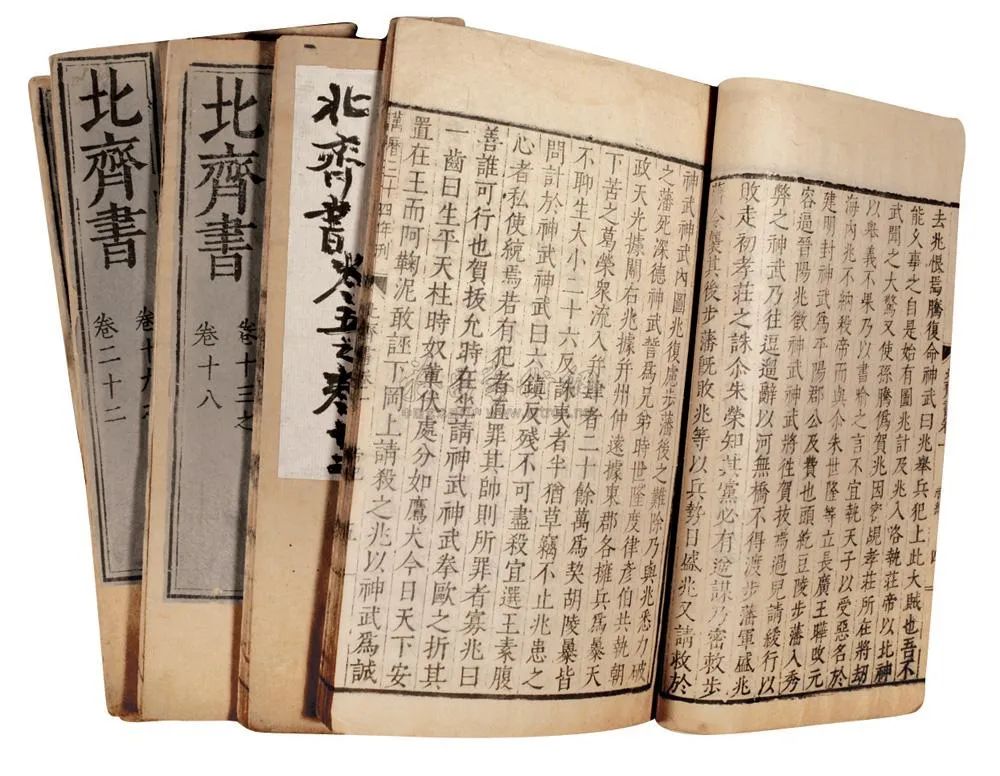 去兆恨焉騰復命神武曰兆舉兵犯上此大賊也吾不
能久事之自是始有圖兆計及兆入洛執莊帝以北神
武聞之大驚又使孫騰偽賀兆因密覘孝莊所在將劫
以舉義不果乃以書喻之言不宜執天子以受惡名於
海內兆不納殺帝而與尒朱世隆等立長廣王曄改元
建明封神武爲平陽郡公及費也頭紇豆陵步藩入秀
容逼晉陽兆徵神武神武將往賀拔焉過兒請緩行以
弊之神武乃往逗遛辭以河無橋不得渡步藩軍盛兆
敗走初孝莊之誅尒朱榮知其黨必有逆謀乃密敕步
藩令襲其後步藩既敗兆等以兵勢日盛兆又請救於
神武神武內圖兆復慮步藩後之難除乃與兆悉力破
之藩死深德神武誓爲兄弟時世隆度律彥伯共執朝
政天光據關右兆據并州仲遠據東郡各擁兵爲暴天
下苦之葛榮衆流入并肆者二十餘萬爲契胡陵暴皆
不聊生大小二十六反誅夷者半猶草竊不止兆患之
問計於神武神武曰六鎮反殘不可盡殺宜選王素腹
心者私使統焉若有犯者直罪其帥則所罪者寡兆曰
善誰可行也賀拔允時在坐請神武神武拳毆之折其
一齒曰生平天柱時奴輩伏處分如鷹犬今日天下安
置在王而阿鞠泥敢誣下罔上請殺之兆以神武爲誠
萬曆二十四年刊
北齊書卷五之卷十二
北齊書
卷十三之
卷十八
北齊書
卷十九之
卷二十二